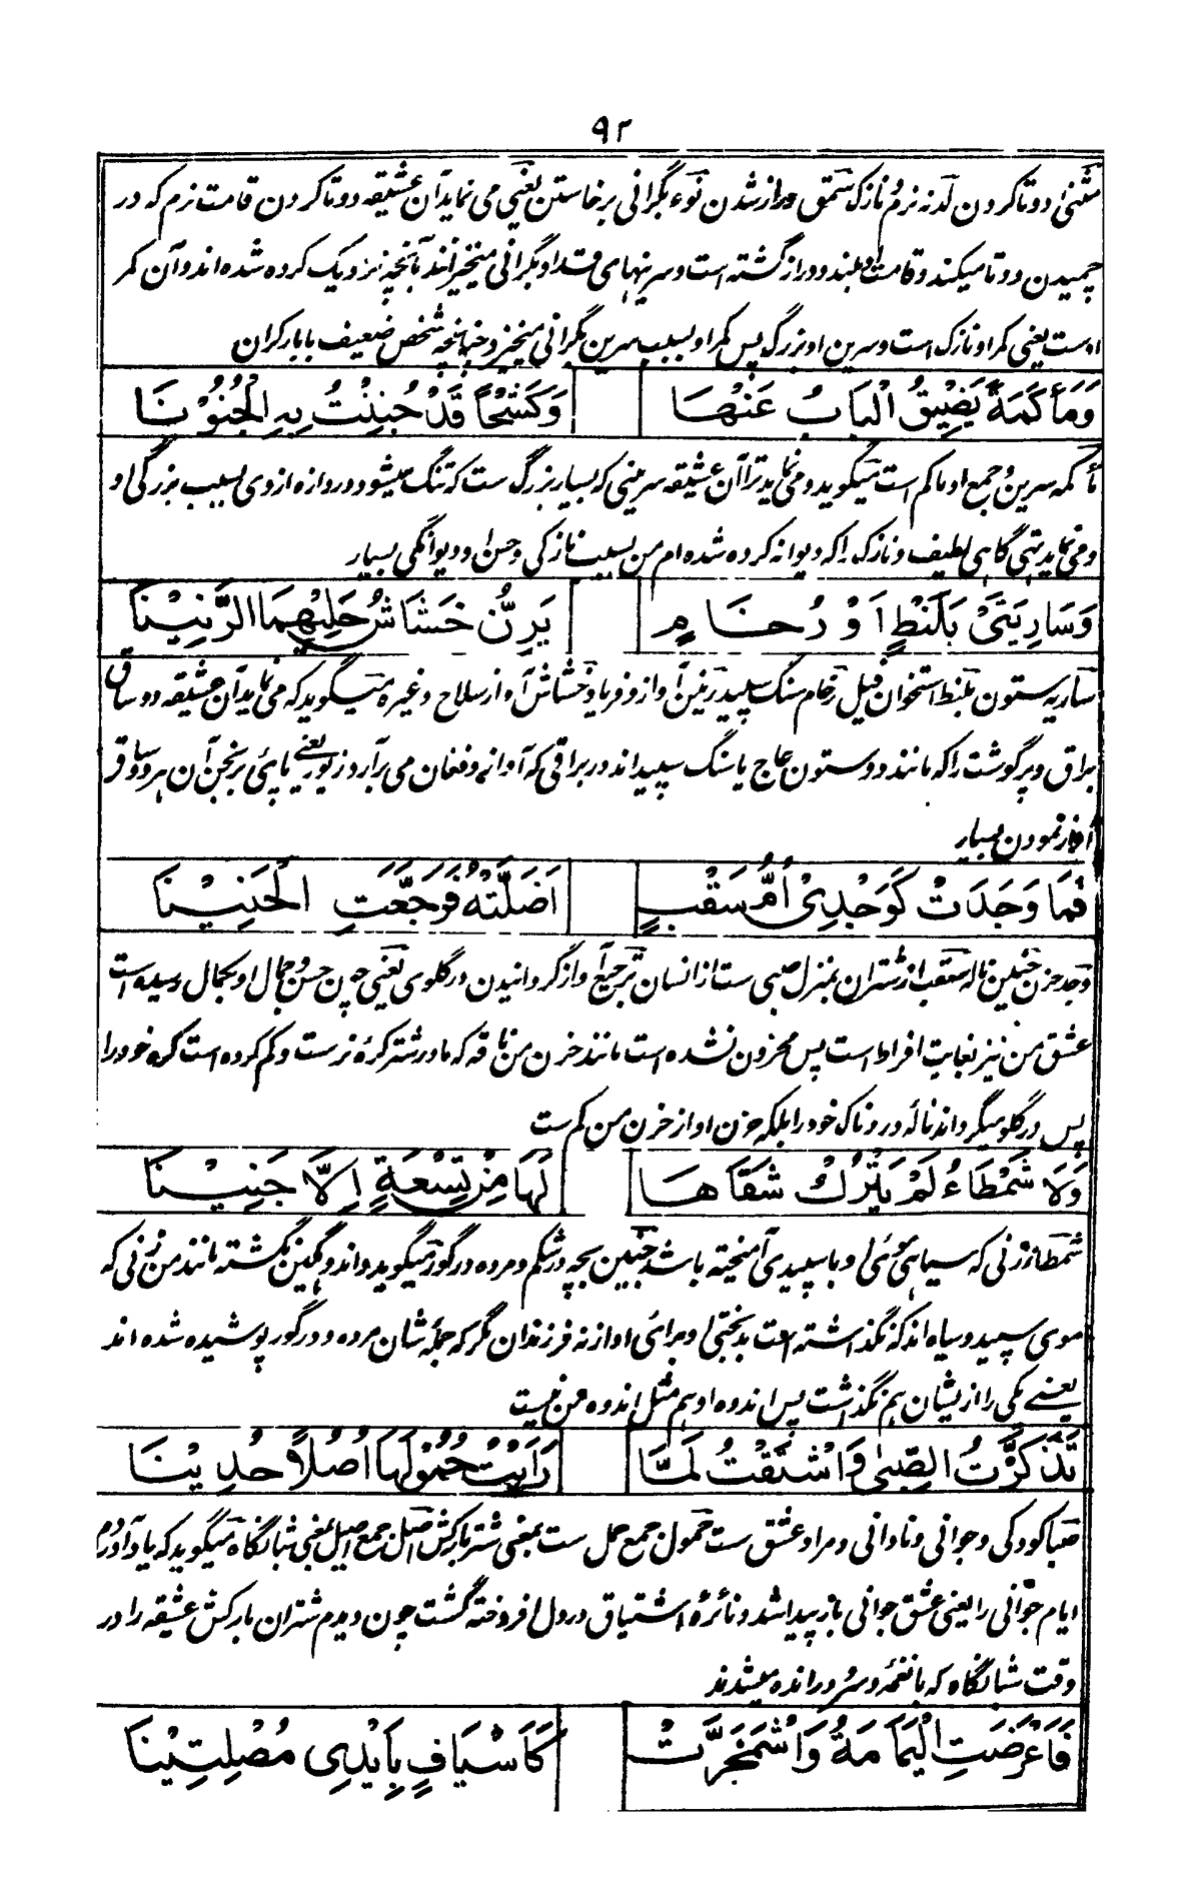 ۹۲
مثنی دو تا کردن لدنه نرم و نازک سمق دراز شدن نوء بگرانی برخاستن یعنی می نماید آن عشیقه دو تا کردن قامت نرم که در
چمیدن دو تا میکند و قامت او بلند و دراز گشته است و سرینهای قد او بگرانی میخیزانند بآنچه نزدیک کرده شده اند و آن کمر
اوست یعنی کمر او نازک است و سرین او بزرگ پس کمر او بسبب سرین بگرانی میخیزد چنانچه شخص ضعیف با بار گران
وَمَأكَمَةً يَضِيقُ الْبَابُ عَنْهَا وَكَشْحًا قَدْ جُنِنْتُ بِهِ الْجُنُوْنَا
مأکمه سرین و جمع او مآکم است میگوید و می نماید ترا آن عشیقه سرینی که بسیار بزرگ ست که تنگ میشود دروازه از وی بسبب بزرگی او
و می نماید تهی گاهی لطیف و نازک را که دیوانه کرده شده ام من بسبب نازکی و حسن او دیوانگی بسیار
وَسَارِيَتَيْ بَلَنْطٍ اَوْ رُخَامٍ يَرِنُّ خَشَاشُ حَلِيْهِمَا الرَّنِيْنَا
ساریه ستون بلنط استخوان فیل رخام سنگ سپید رنین آواز و فریاد خشاش آواز سلاح و غیره میگوید که می نماید آن عشیقه دو ساق
براق و پر گوشت را که مانند دو ستون عاج یا سنگ سپید اند در براقی که آواز و فغان می برآرد زیور یعنی پای برنجن آن هر دو ساق
آواز نمودن بسیار
فَمَا وَجَدَتْ كَوَجْدِيْ اُمُّ سَقْبٍ اَضَلَّتْهُ فَرَجَّعَتِ الْحَنِيْنَا
وجد حزن حنین ناله سقب از شتران بمنزل صبی ست از انسان ترجیع آواز گردانیدن در گلوی یعنی چون حسن و جمال او بکمال رسیده است
عشق من نیز بغایت افراط است پس محزون نشده است مانند حزن من ناقه که مادر شتر کرهٔ نرست و گم کرده است کره خود را
پس در گلو میگرداند نالهٔ دردناک خود را بلکه حزن او از حزن من کم ست
وَلَا شَمْطَاءُ لَمْ يَتْرُكْ شَقَاهَا لَهَا مِنْ تِسْعَةٍ اِلَّا جَنِيْنَا
شمطاء زنی که سیاهی موی او با سپیدی آمیخته باشد جنین بچه در شکم و مرده در گور میگوید و اندوهگین نگشته مانند من زنی که
موی سپید و سیاه اند که نگذاشته است بدبختی او برای او از نه فرزندان مگر که جمله شان مرده و در گور پوشیده شده اند
یعنے یکی را از یشان هم نگذاشت پس اندوه او هم مثل اندوه من نیست
تَذَكَّرْتُ الصِّبٰى وَاشْتَقْتُ لَمَّا رَاَيْتُ حُمُوْلَهَا اُصُلًا حُدِيْنَا
صبا کودکی و جوانی و نادانی و مراد عشق ست حمول جمع حمل ست بمعنی شتر بارکش اصل جمع اصیل بمعنی شبانگاه میگوید که یاد آوردم
ایام جوانی را یعنی عشق جوانی باز پیدا شد و نائرهٔ اشتیاق در دل افروخته گشت چون دیدم شتران بارکش عشیقه را در
وقت شبانگاه که با نغمه و سرود رانده میشدند
فَاَعْرَضَتِ الْيَمَامَةُ وَاشْمَخَرَّتْ كَاَسْيَافٍ بِاَيْدِيْ مُصْلِتِيْنَا